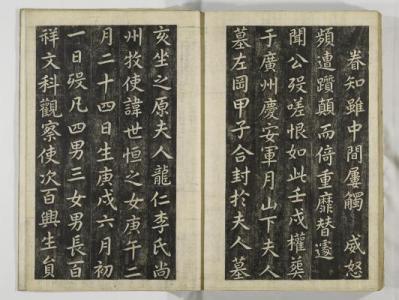 眷知雖中間屢觸　威怒
頻遭躓顚而倚重靡替遽
聞公歿嗟恨如此壬戌權葬
于廣州慶安軍月山下夫人
墓左岡甲子合封於夫人墓
亥坐之原夫人龍仁李氏尚
州牧使諱世恒之女庚午二
月二十四日生庚戌六月初
一日歿凡四男三女男長百
祥文科觀察使次百興生員